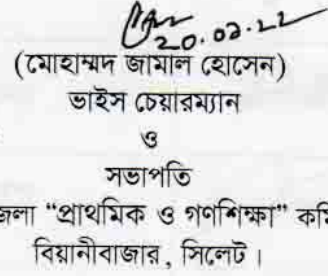 20.02.22
(মোহাম্মদ জামাল হোসেন)
ভাইস চেয়ারম্যান
ও
সভাপতি
জেলা “প্রাথমিক ও গণশিক্ষা” কমি
বিয়ানীবাজার, সিলেট।